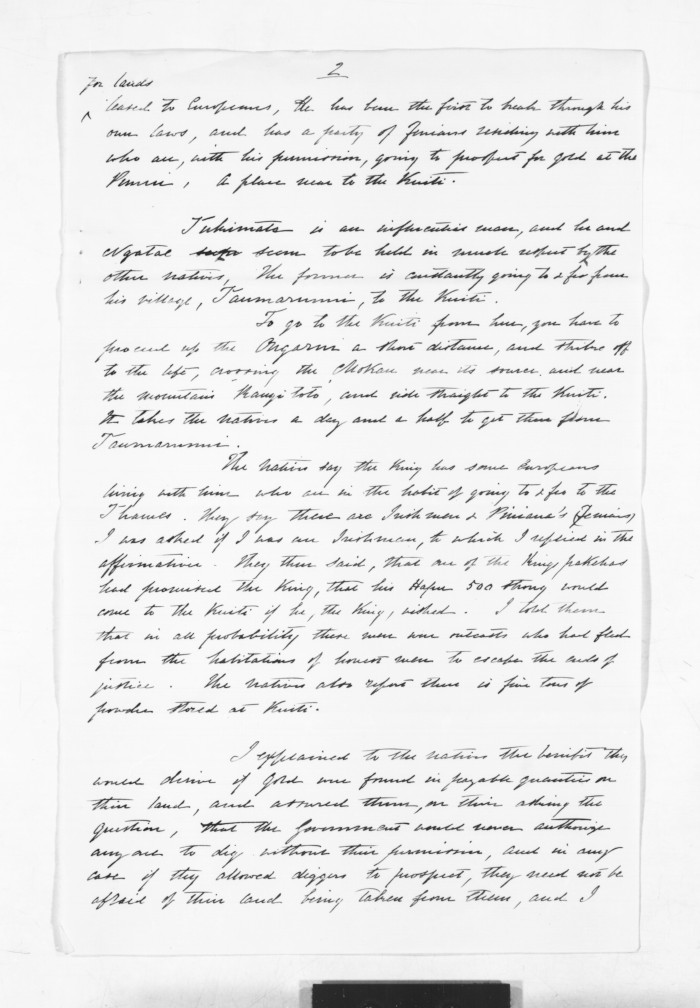 2
for lands
leased to Europeans, He has been the first to break through his
own laws, and has a party of Fenians residing with him
who are, with his permission, going to prospect for gold at the
, A place near to the Kuiti.
Tuhimata is an influential man, and he and
Ngatae seem to be held in much respect by the
other natives, The former is constantly going to & fro from
his village, Taumarunui, to the Kuiti.
To go to the Kuiti from here, you have to
proceed up the Ongarui a short distance, and strike off
to the left, crossing the Mokau near its source and near
the mountain Rangitoto, and ride straight to the Kuiti.
It takes the natives a day and a half to get there from
Taumarunui.
The natives say the King has some Europeans
living with him who are in the habit of going to & fro to the
Thames. They say these are Irishmen & Piniana's (Fenians)
I was asked if I was an Irishman, to which I replied in the
affirmative. They then said, that one of the Kings pakehas
had promised the King, that his Hapu 500 strong would
come to the Kuiti if he, the King, wished. I told them
that in all probability these men were outcasts who had fled
from the habitations of honest men to escape the ends of
justice. The natives also report there is five tons of
powder stored at Kuiti.
I explained to the natives the benefits they
would derive if Gold were found in payable quantities on
their land, and assured them, on their asking the
question, that the Government would never authorize
anyone to dig without their permission, and in any
case if they allowed diggers to prospect, they need not be
afraid of their land being taken from them, and I